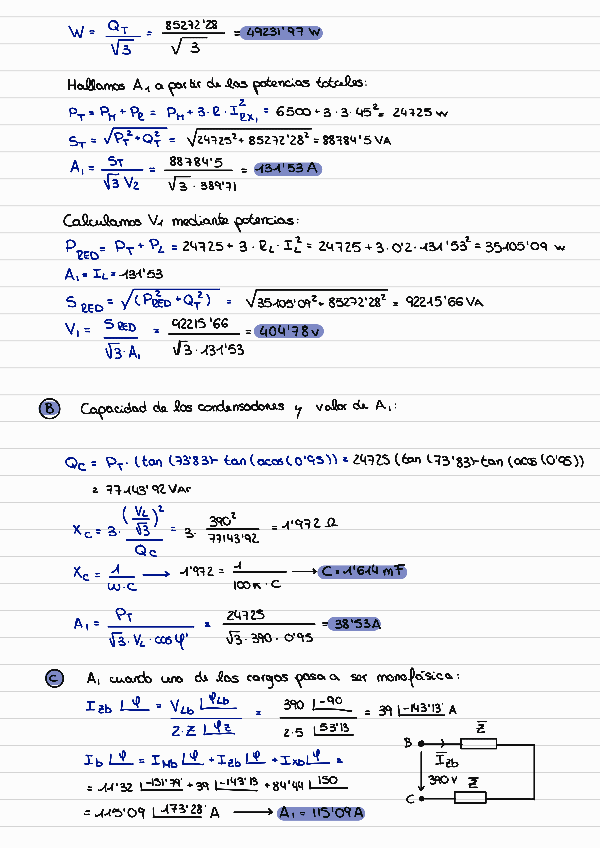 W = Q_T / √3 = 85272'28 / √3 = 49231'97 W
Hallamos A₁ a partir de las potencias totales:
P_T = P_M + P_R = P_M + 3·R·I²_RX₁ = 6500 + 3·3·45² = 24725 W
S_T = √(P_T² + Q_T²) = √(24725² + 85272'28²) = 88784'5 VA
A₁ = S_T / (√3 V₂) = 88784'5 / (√3 · 389'71) = 131'53 A
Calculamos V₁ mediante potencias:
P_RED = P_T + P_L = 24725 + 3·R_L·I_L² = 24725 + 3·0'2·131'53² = 35105'09 W
A₁ = I_L = 131'53
S_RED = √(P²_RED + Q_T²) = √(35105'09² + 85272'28²) = 92215'66 VA
V₁ = S_RED / (√3·A₁) = 92215'66 / (√3·131'53) = 404'78 V
B Capacidad de los condensadores y valor de A₁:
Q_C = P_T·(tan(73'83)-tan(acos(0'95)) = 24725(tan(73'83)-tan(acos(0'95))
= 77143'92 VAr
X_C = 3·(V_L/√3)² / Q_C = 3· 390² / 77143'92 = 1'972 Ω
X_C = 1 / (ω·C) → 1'972 = 1 / (100π·C) → C = 1'614 mF
A₁ = P_T / (√3·V_L·cos φ') = 24725 / (√3·390·0'95) = 38'53 A
C A₁ cuando una de las cargas pasa a ser monofásica:
I_Zb ∟φ = V_Lb ∟φ_Lb / (2·Z ∟φ_Z) = 390 ∟-90 / (2·5 ∟53'13) = 39 ∟-143'13 A
I_b ∟φ = I_Mb ∟φ + I_Zb ∟φ + I_Xb ∟φ =
= 11'32 ∟-131'79 + 39 ∟-143'13 + 84'44 ∟150
= 115'09 ∟173'28 A → A₁ = 115'09 A
B Z̅
I̅_Zb
390 V
C Z̅